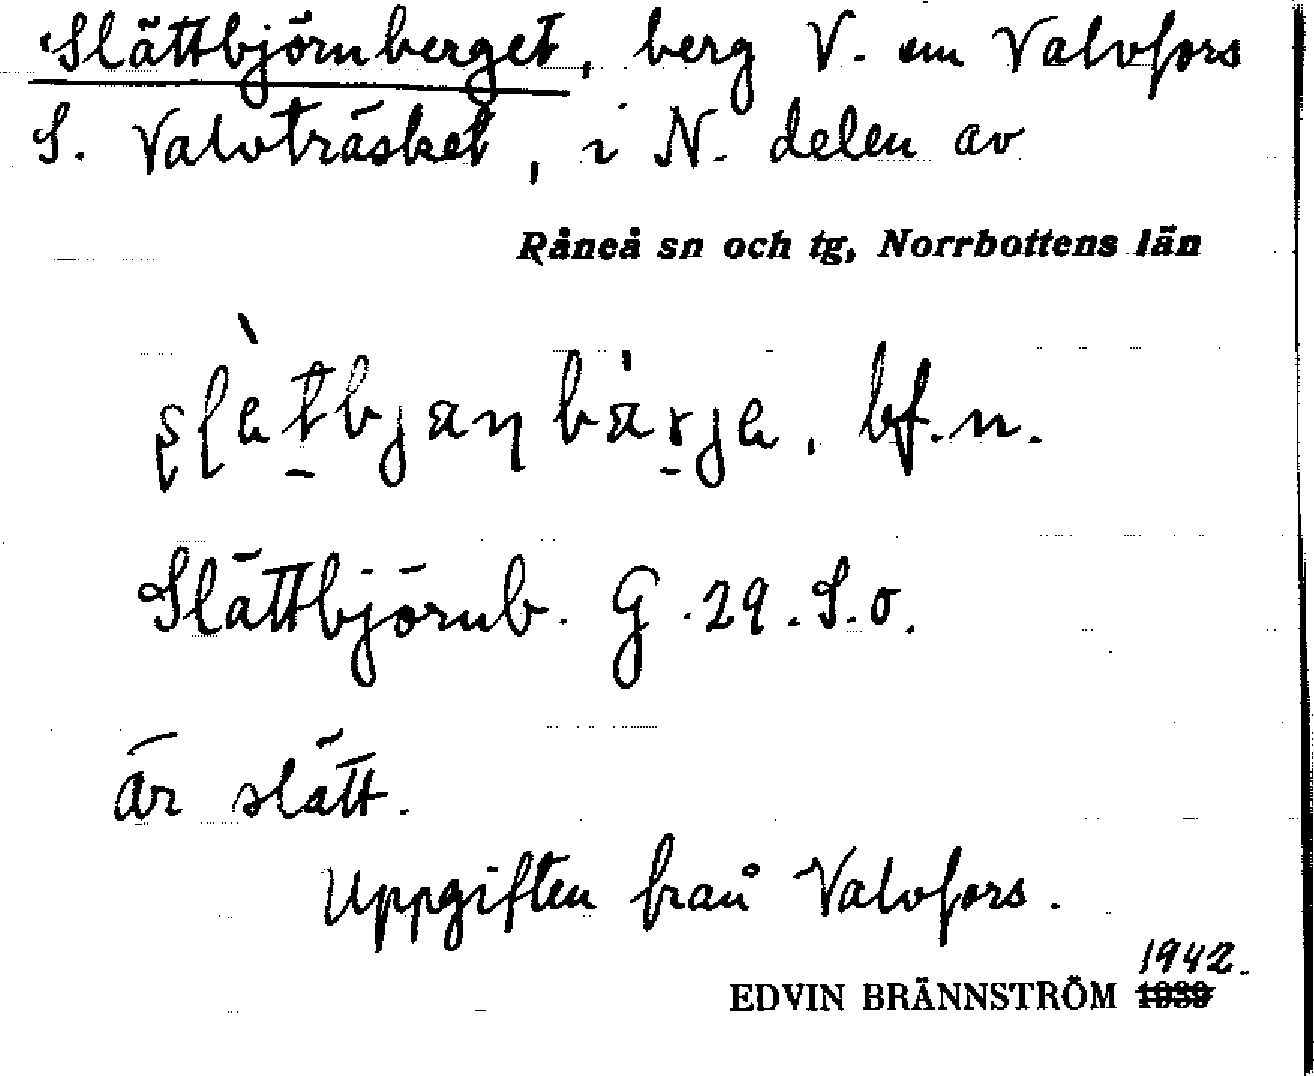 Slättbjörnberget, berg V. om Valvfors
S. Valvträsket, i N. delen av
Råneå sn och tg, Norrbottens län
bf. n.
Slättbjörnb. G. 29. S.o.
är slätt.
Uppgiften från Valvfors.
1942.
EDVIN BRÄNNSTRÖM 1939